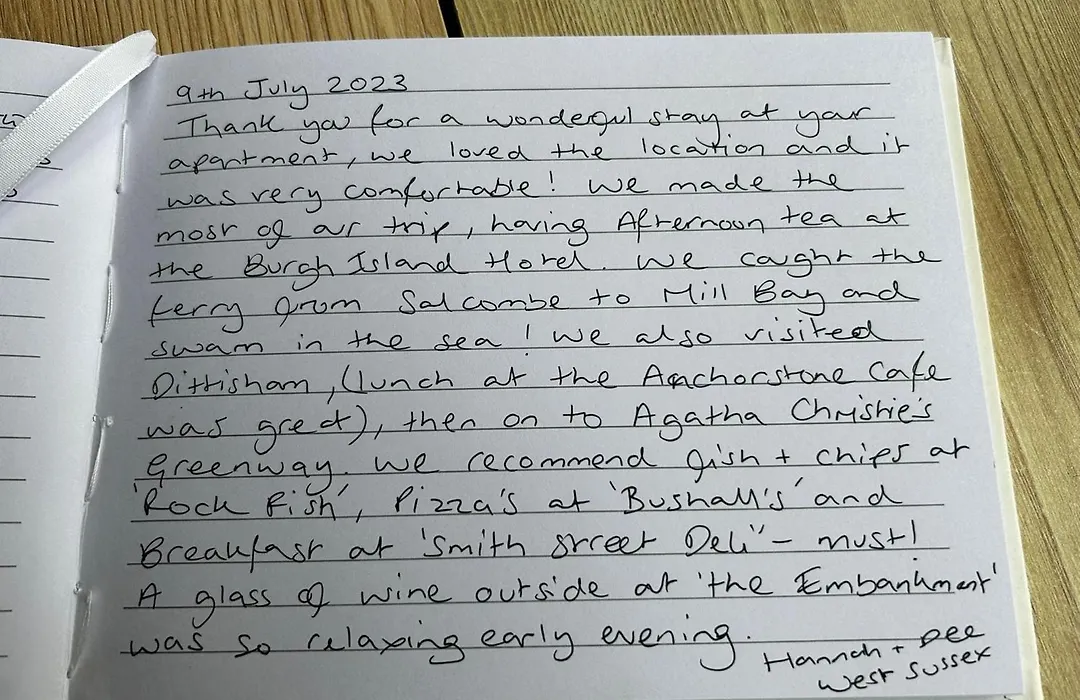 9th July 2023
Thank you for a wonderful stay at your
apartment, we loved the location and it
was very comfortable! We made the
most of our trip, having Afternoon tea at
the Burgh Island Hotel. We caught the
ferry from Salcombe to Mill Bay and
swam in the sea! We also visited
Dittisham, (lunch at the Anchorstone Cafe
was great), then on to Agatha Christie's
Greenway. We recommend fish + chips at
'Rock Fish', Pizza's at 'Bushall's' and
Breakfast at 'Smith Street Deli' - must!
A glass of wine outside at 'the Embankment'
was so relaxing early evening.
Hannah + Dee
West Sussex